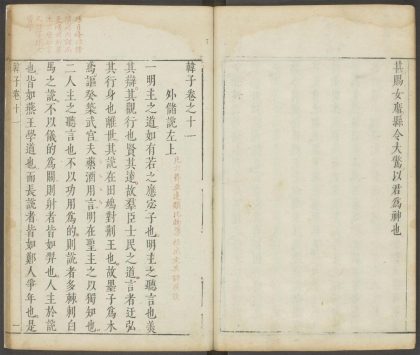 甚賜女縣令大驚以君爲神也
韓子卷之十一
外儲說左上
一明主之道如有若之應宓子也明主之聽言也美
其辯其觀行也賢其遠故羣臣士民之道言者迂弘
其行身也離世其說在田鳩對荆王也故墨子爲木
鳶謳癸築武宮夫藥酒用言明君聖主之以獨知也
二人主之聽言也不以功用爲的則說者多棘刺白
馬之說不以儀的爲關則射者皆如羿也人主於說
也皆如燕王學道也而長說者皆如鄭人爭年也是
韓子卷十一
一